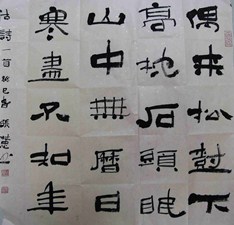 偶來松樹下
高枕石頭眠
山中無曆日
寒盡不知年
古詩一首